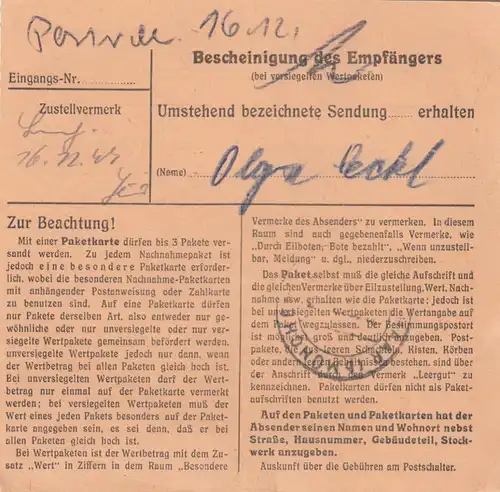 16.12.
Bescheinigung des Empfängers
(bei versiegelten Wertpaketen)
Eingangs-Nr.
Zustellvermerk
Umstehend bezeichnete Sendung ...... erhalten
(Name) Olga Eckl
Zur Beachtung!
Mit einer Paketkarte dürfen bis 3 Pakete ver-
sandt werden. Zu jedem Nachnahmepaket ist
jedoch eine besondere Paketkarte erforder-
lich, wobei die besonderen Nachnahme-Paketkarten
mit anhängender Postenweisung oder Zahlkarte
zu benutzen sind. Auf eine Paketkarte dürfen
nur Pakete derselben Art, also entweder nur ge-
wöhnliche oder nur unversiegelte oder nur ver-
siegelte Wertpakete gemeinsam befördert werden,
unversiegelte Wertpakete jedoch nur dann, wenn
der Wertbetrag bei allen Paketen gleich hoch ist.
Bei unversiegelten Wertpaketen darf der Wert-
betrag nur einmal auf der Paketkarte vermerkt
werden; bei versiegelten Wertpaketen muß der
Wert eines jeden Pakets besonders auf der Paket-
karte angegeben sein, es sei denn, daß er bei
allen Paketen gleich hoch ist.
Bei Wertpaketen ist der Wertbetrag mit dem Zu-
satz „Wert" in Ziffern in dem Raum „Besondere
Vermerke des Absenders" zu vermerken. In diesem
Raum sind auch gegebenenfalls Vermerke, wie
„Durch Eilboten, Bote bezahlt", „Wenn unzustell-
bar, Meldung" u. dgl., niederzuschreiben.
Das Paket selbst muß die gleiche Aufschrift und
die gleichen Vermerke über Eilzustellung, Wert, Nach-
nahme usw. erhalten wie die Paketkarte; jedoch ist
bei unversiegelten Wertpaketen die Wertangabe auf
dem Paket wegzulassen. Der Bestimmungspostort
ist möglichst groß und deutlich anzugeben. Post-
pakete, die aus leeren Schachteln, Kisten, Körben
oder anderen leeren Behältnissen bestehen, sind über
der Anschrift durch den Vermerk „Leergut" zu
kennzeichnen. Paketkarten dürfen nicht als Paket-
aufschriften benutzt werden.
Auf den Paketen und Paketkarten hat der
Absender seinen Namen und Wohnort nebst
Straße, Hausnummer, Gebäudeteil, Stock-
werk anzugeben.
Auskunft über die Gebühren am Postschalter.